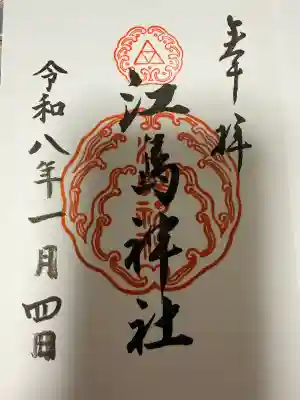 奉拝
江島神社
令和八年一月四日